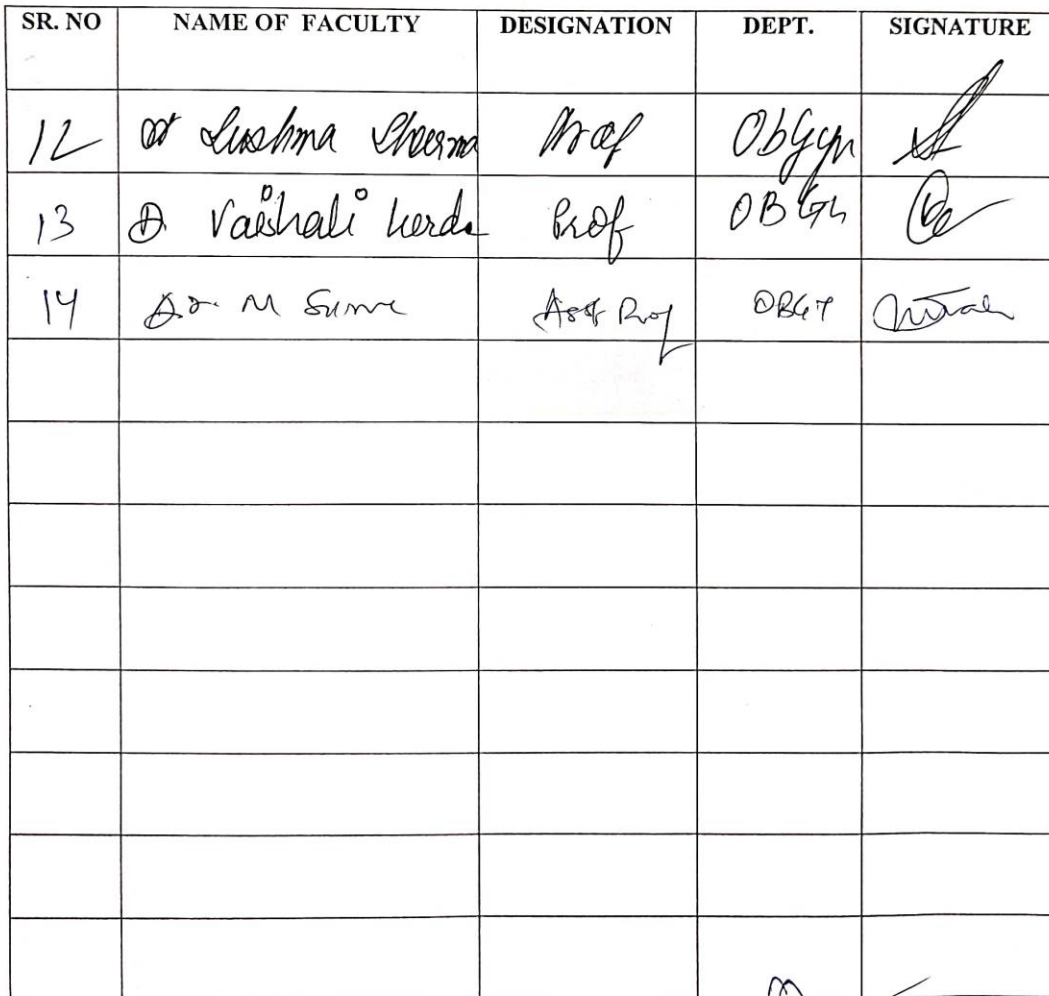 SR. NO NAME OF FACULTY DESIGNATION DEPT. SIGNATURE
12 Dr Sushma Sharma Prof ObGyn
13 Dr Vaishali Prof OBGY
14 Dr. M Asst Prof OBGY